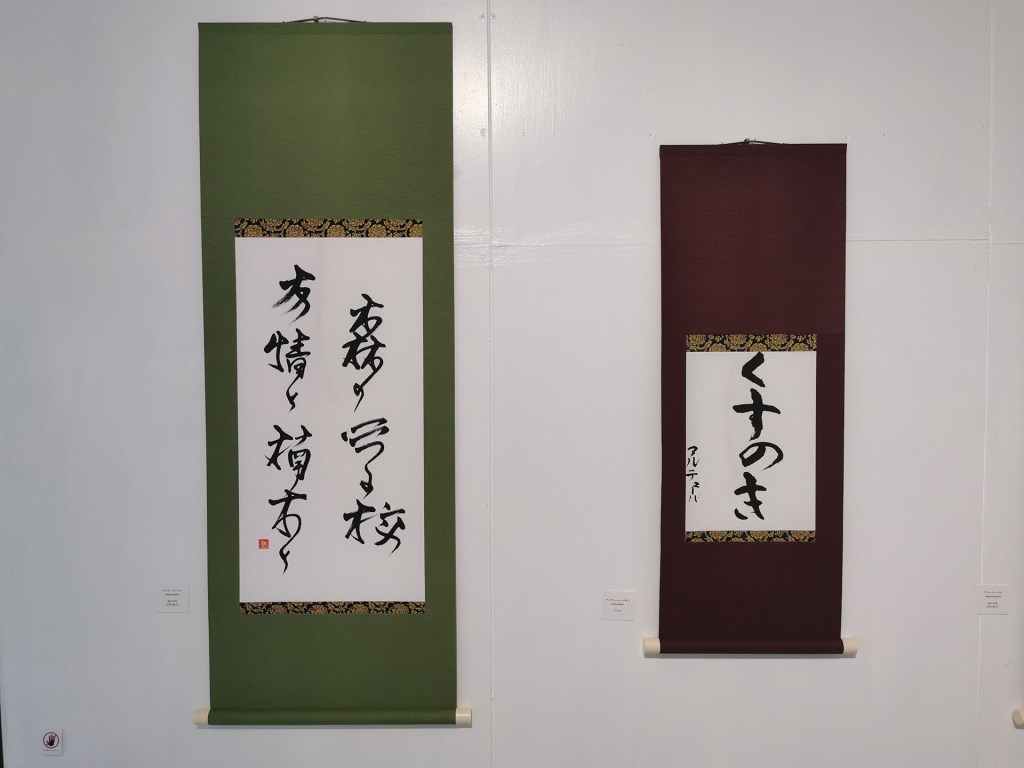 森の学校
友情と楠木と
くすのき
アルテュール